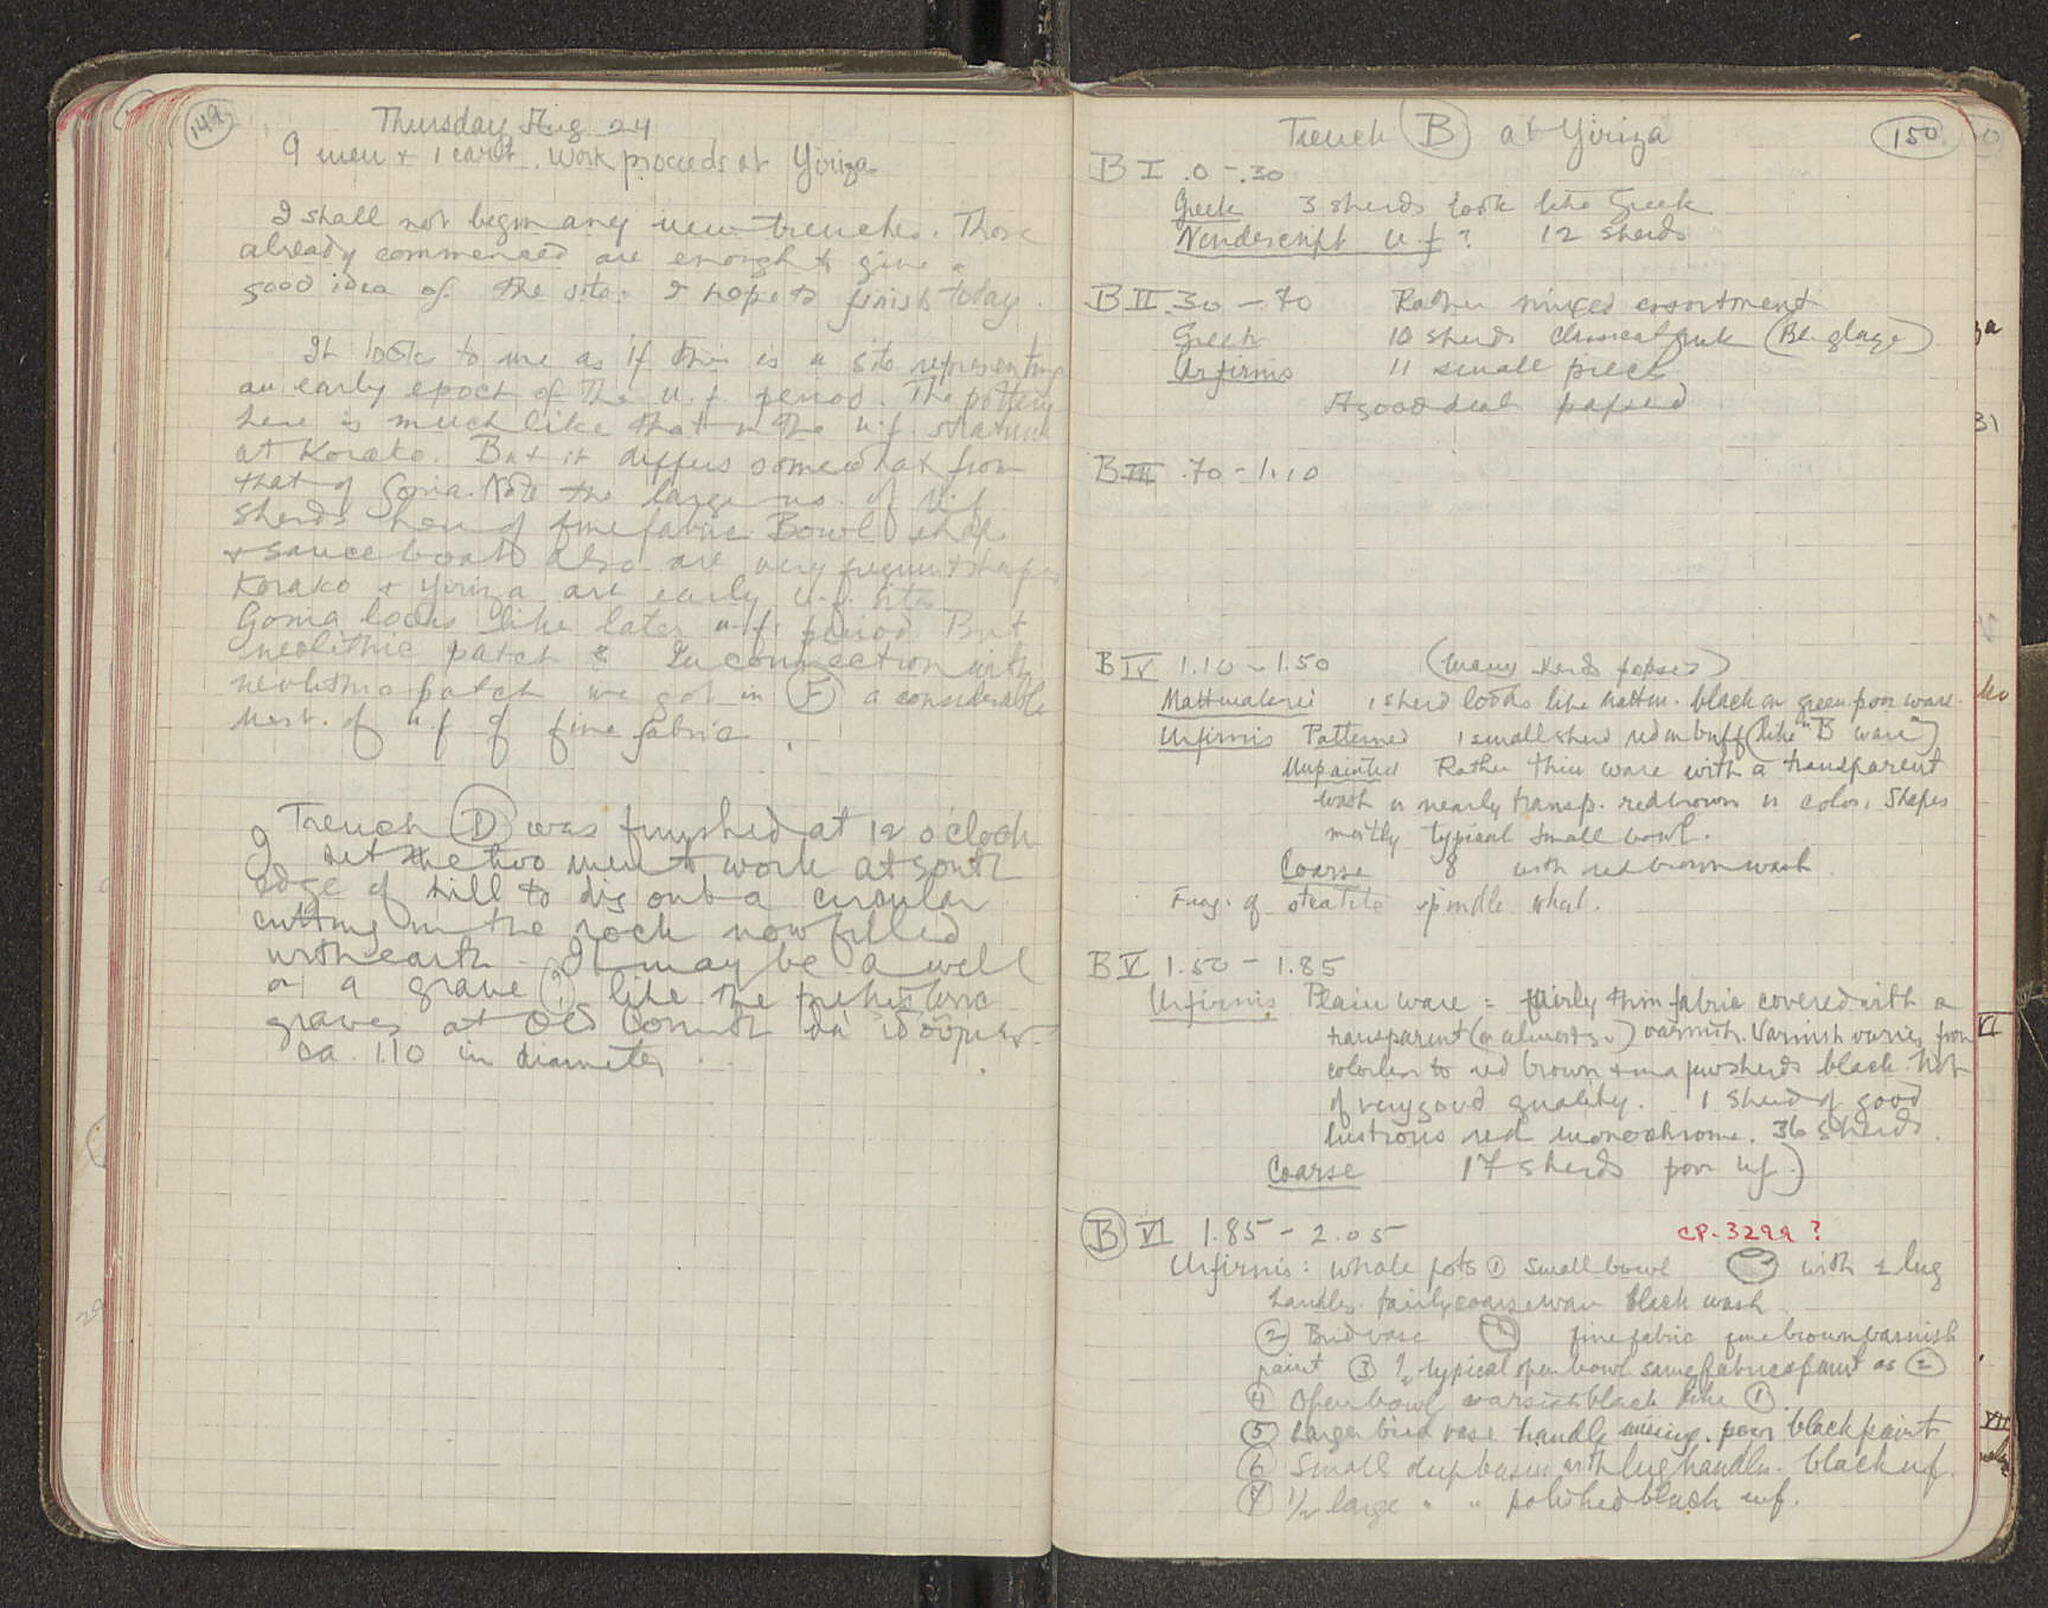 149
Thursday Aug 24
9 men + 1 cart. Work proceeds at Yiriza.
I shall not begin any new trenches. Those
already commenced are enough to give a
good idea of the site. I hope to finish today.
It looks to me as if this is a site representing
an early epoch of the u.f. period. The pottery
here is much like that in the u.f. stratum
at Korako. But it differs somewhat from
that of Gonia. Note the large no. of u.f.
sherds here of fine fabric. Bowl shape
+ sauceboats also are very frequent shapes
Korako + Yiriza are early u.f. sites
Gonia looks like later u.f. period But
neolithic patch & In connection with
neolithic patch we got in F a considerable
of u.f of fine fabric.
Trench D was finished at 12 o'clock
I set the two men to work at south
edge of hill to dig out a circular
cutting in the rock now filled
with earth - It may be a well
or a grave ? like the prehistoric
graves at Old Corinth
ca. 1.10 in diameter
Trench B at Yiriza
150
B I .0 - .30
Greek 3 sherds look like Greek
Nondescript u.f? 12 sherds
B II .30 - 70 Rather mixed assortment
Greek 10 sherds classical Greek (Bl. glaze)
Urfirnis 11 small pieces
A good deal papsed
B III .70 - 1.10
B IV 1.10 - 1.50 (many sherds papsed)
Mattmalerei 1 sherd looks like mattm. black on green poor ware.
Urfirnis Patterned 1 small sherd red on buff (like "B ware")
Unpainted Rather thin ware with a transparent
wash or nearly transp. redbrown in color. Shapes
mostly typical small bowl.
Coarse 8 with red brown wash
Frag. of steatite spindle whorl.
B V 1.50 - 1.85
Urfirnis Plain ware = fairly thin fabric covered with a
transparent (or almost so) varnish. Varnish varies from
colorless to red brown + in a few sherds black. Not
of very good quality. 1 Sherd of good
lustrous red monochrome. 36 sherds.
Coarse 17 sherds poor uf.)
B VI 1.85 - 2.05 CP-3299?
Urfirnis: whole pots 1 small bowl with 2 lug
handles. fairly coarse ware black wash.
2 Bird vase fine fabric fine brown varnish
paint 3 ½ typical open bowl same fabric + paint as 2
4 Open bowl varnish black like 1.
5 Larger bird vase handle missing. poor black paint
6 Small deep basin with lug handles. black uf.
7 1/2 large " " polished black uf.